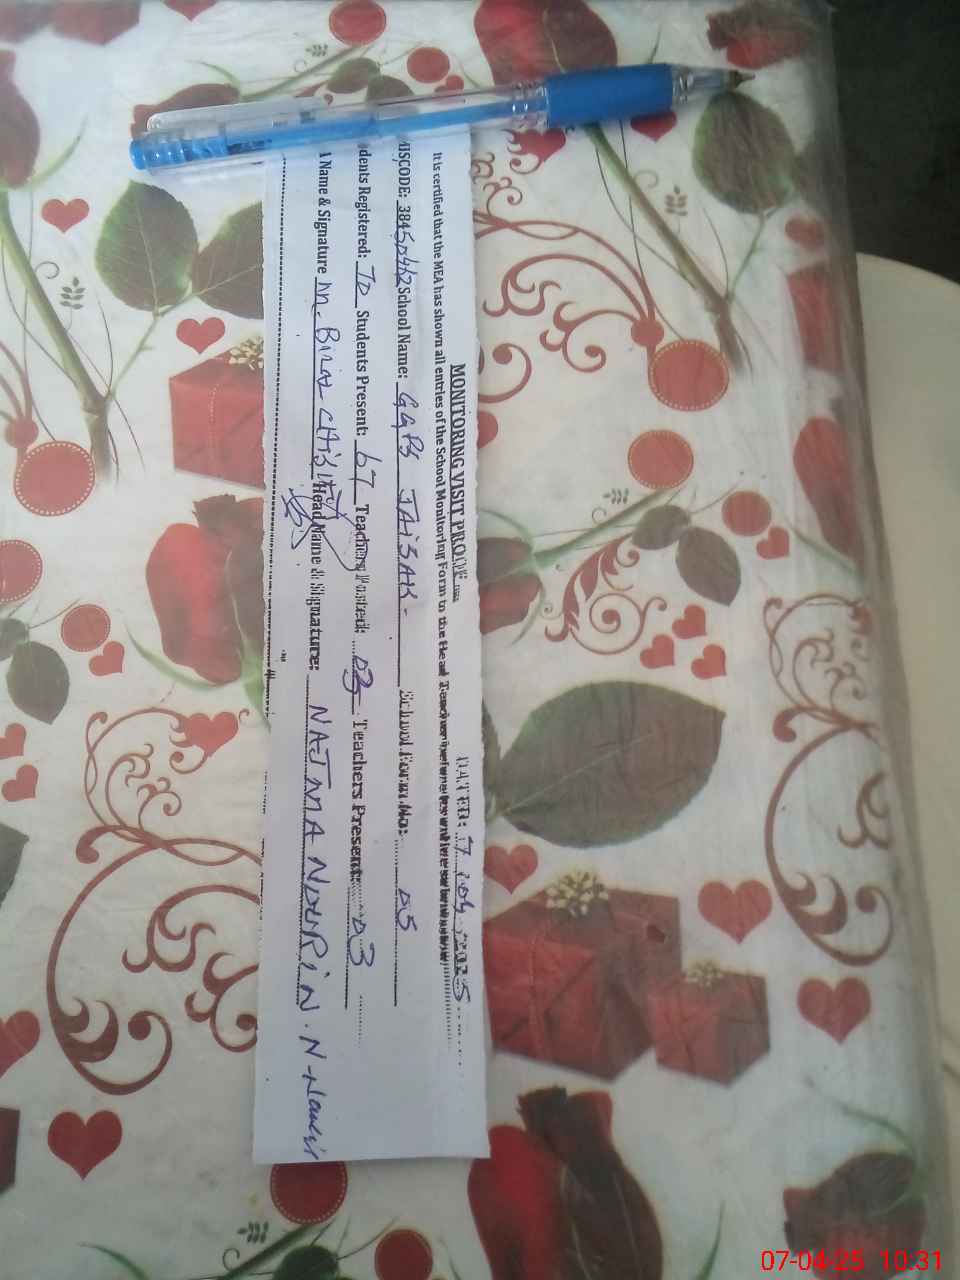 MONITORING VISIT PROOF
DATED: 7 /04 /2025
It is certified that the MEA has shown all entries of the School Monitoring Form to the Head Teacher before
MISCODE: School Name: GGPS JAISAK - School Form No: 05
dents Registered: 70 Students Present: 67 Teachers Posted: 03 Teachers Present: 03
A Name & Signature M. Head Name & Signature: NAJMA NOURIN.
07-04-25 10:31